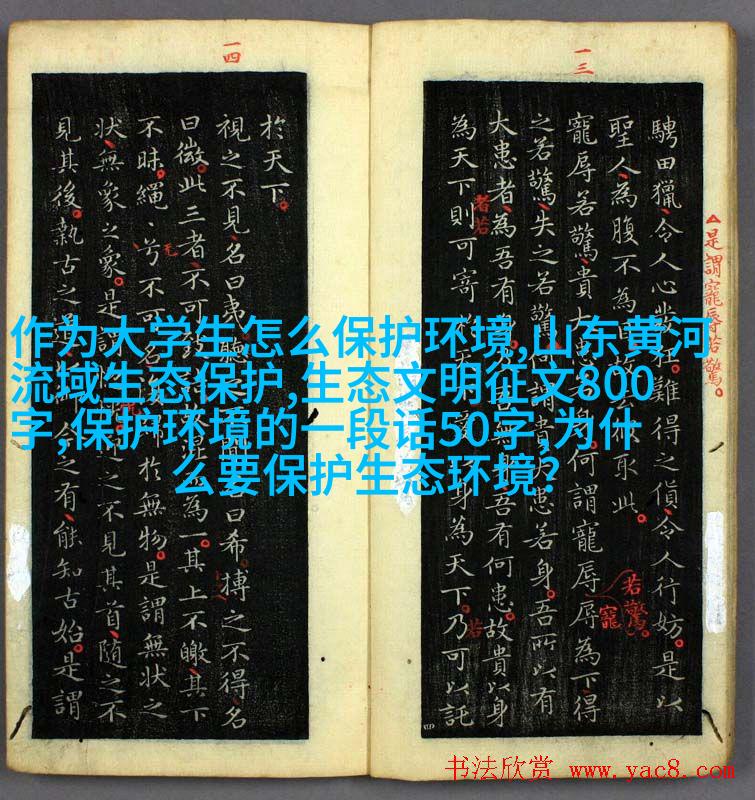 作为大学生怎么保护环境,山东黄河
流域生态保护,生态文明征文800
字,保护环境的一段话50字,为什
么要保护生态环境?
一三
騁田獵令人心發狂難得之貨令人行妨是以
聖人為腹不為目故取此
寵辱若驚貴大患身何謂寵辱辱為下得
之若驚失之若驚何謂貴大患若身吾所以有
大患者為吾有身無吾有何患故貴以身
為天下則可寄天下身為天下乃可以託
△是謂寵辱若驚
者若
若驚
寵
若
一四
於天下
視之不見名曰夷聽名曰希搏之不得名
曰微此三者不可致混為一其上不皦其下
不昧繩〻兮不可名於無物是謂無狀之
狀無象之象是謂之不見其首隨之不
見其後執古之道今之有能知古始是謂
书法欣赏 www.yac8.com